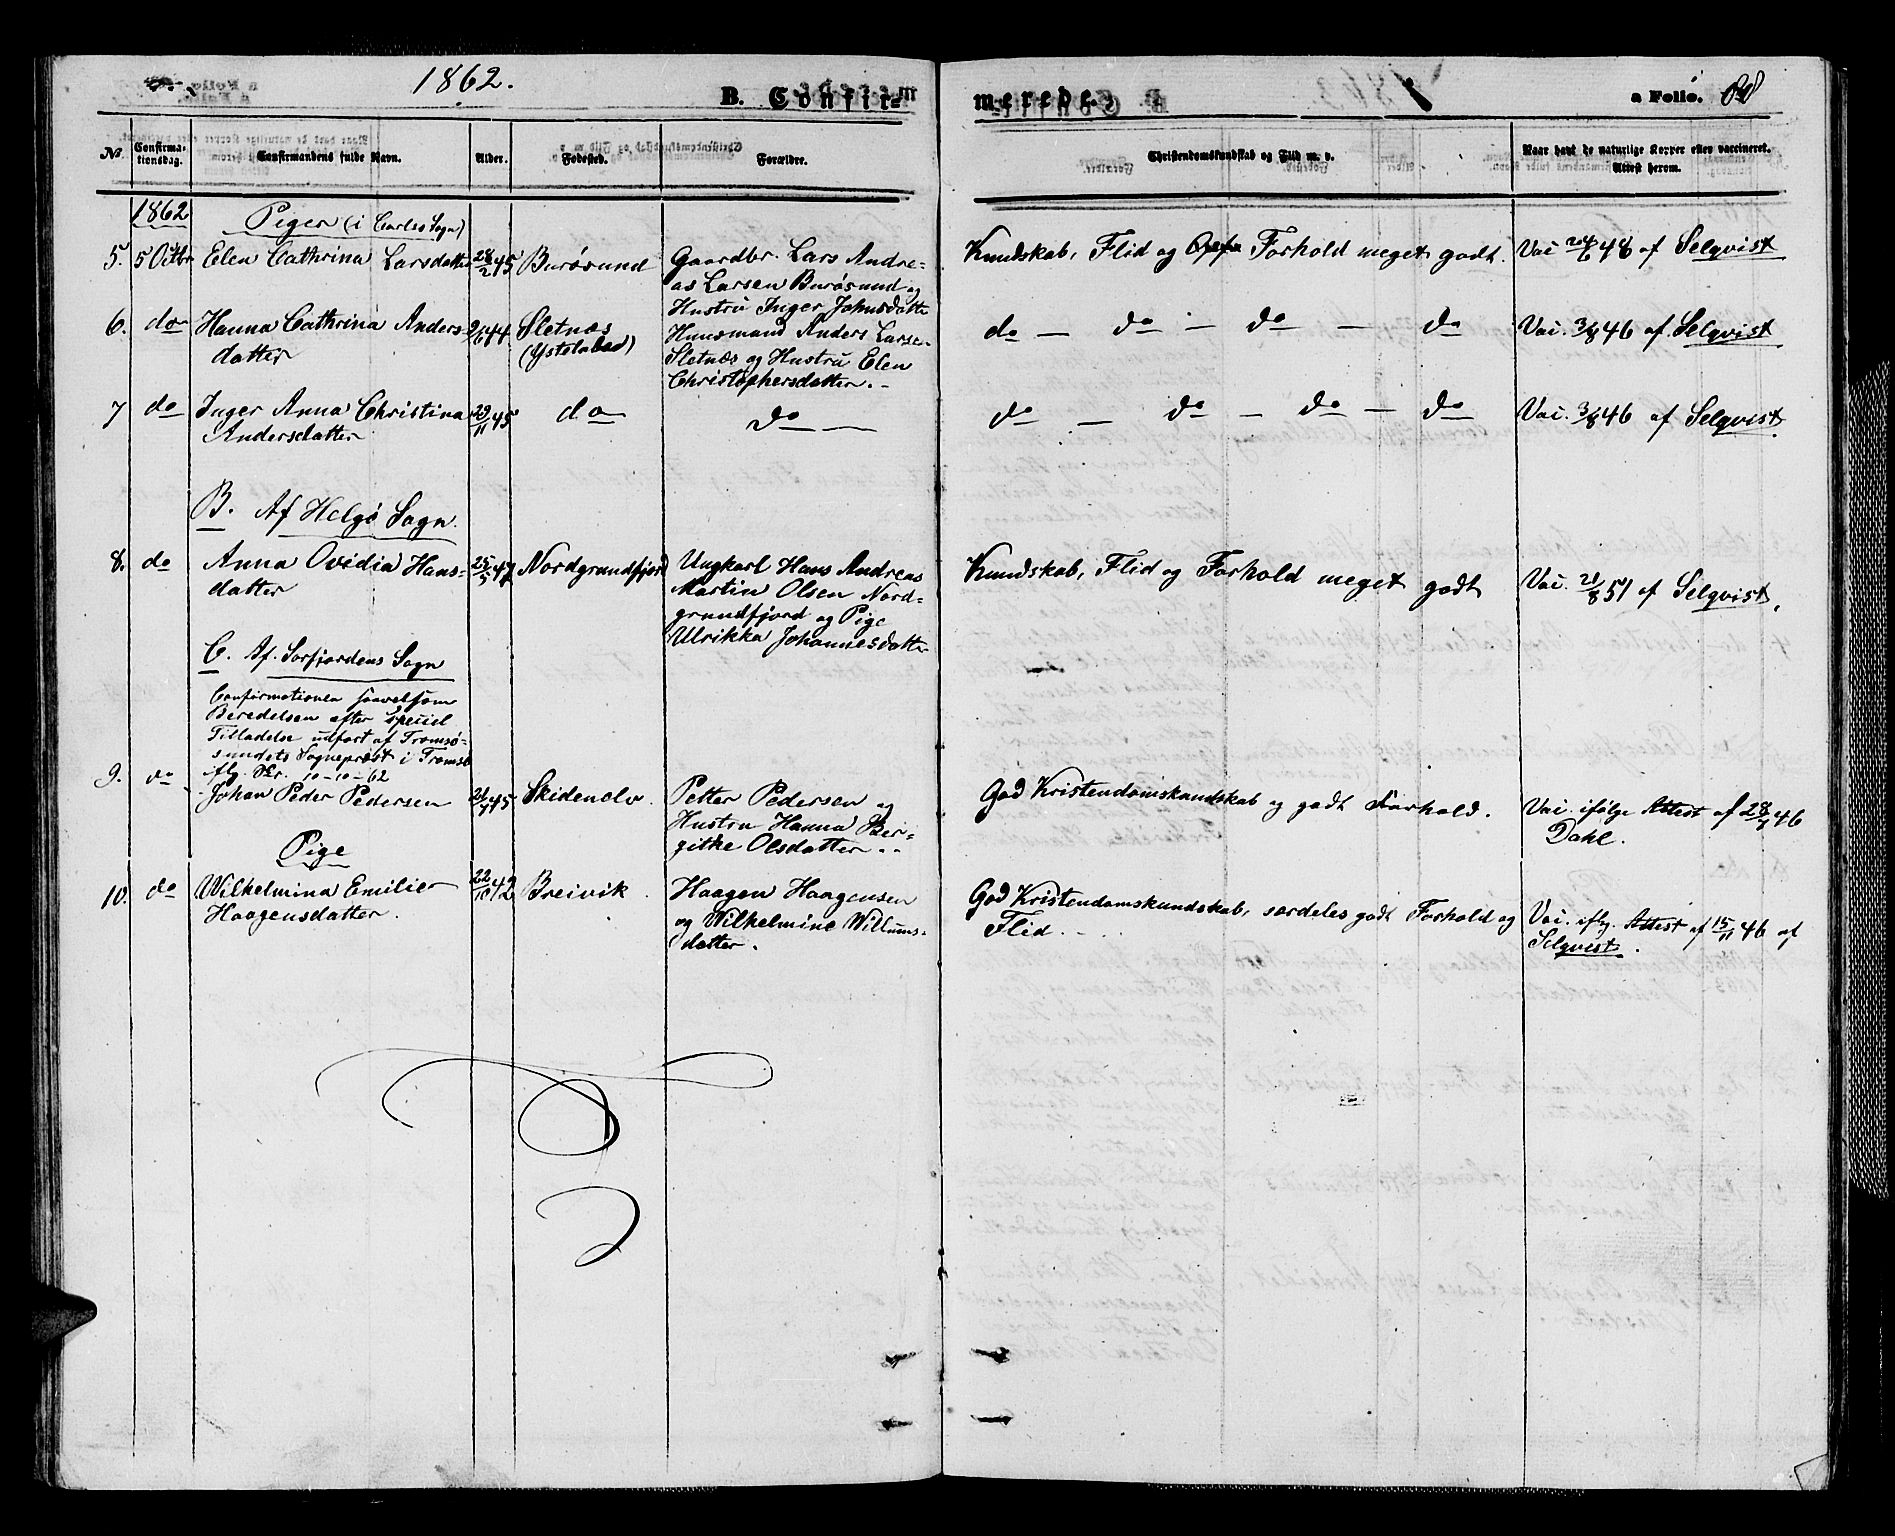 1862.
B. Confir-
merede.
a Folio. 68
No.
Confirma-
tionsdag.
Confirmandens fulde Navn.
Alder.
Fødested.
Forældre.
Christendomskundskab og Flid m. v.
Naar havt de naturlige Kopper eller vaccineret.
Attest herom.
1862 Piger (i Carlsø Sogn)
5. 5 Octbr Elen Cathrina Larsdatter 28/2 45 Burøsund Gaardbr. Lars Andre-
as Larsen Burøsund og
Hustru Inger Johnsdatter
Kundskab, Flid og Forhold meget godt. Vac. 24/6 48 af Selqvist
6. do Hanna Cathrina Anders-
datter
2/6 44 Sletnæs
Huusmand Anders Larsen
Sletnæs og Hustru Elen
Christophersdatter.
do — do — do — do Vac. 3/8 46 af Selqvist
7 do Inger Anna Christina
Andersdatter
29/11 45 do do —
do — do — do — do Vac. 3/8 46 af Selqvist.
B. Af Helgø Sogn.
8. do Anna Ovidia Hans-
datter
25/5 47 Nordgrundfjord Ungkarl Hans Andreas
Martin Olsen Nord-
grundfjord og Pige
Ulrikka Johannesdatter
Kundskab, Flid og Forhold meget godt Vac. 21/8 51 af Selqvist,
C. Af Sørfjordens Sogn
Confirmationen saavelsom
Beredelsen efter speciel
Tilladelse udført af Tromsø-
sundets Sognepræst i Tromsø
iflg. Skr. 10-10-62
9. do Johan Peder Pedersen 21/7 45 Skidenelv. Petter Pedersen og
Hustru Hanna Ber-
githe Olsdatter.
God Kristendomskundskab og godt Forhold. Vac. ifølge Attest af 28/7 46
Dahl.
Pige
10. do Wilhelmina Emilie
Haagensdatter.
22/10 42 Breivik. Haagen Haagensen
og Wilhelmine Willums-
datter.
God Kristendomskundskab, særdeles godt Forhold og
Flid.
Vac. iflg. Attest af 15/11 46 af
Selqvist.